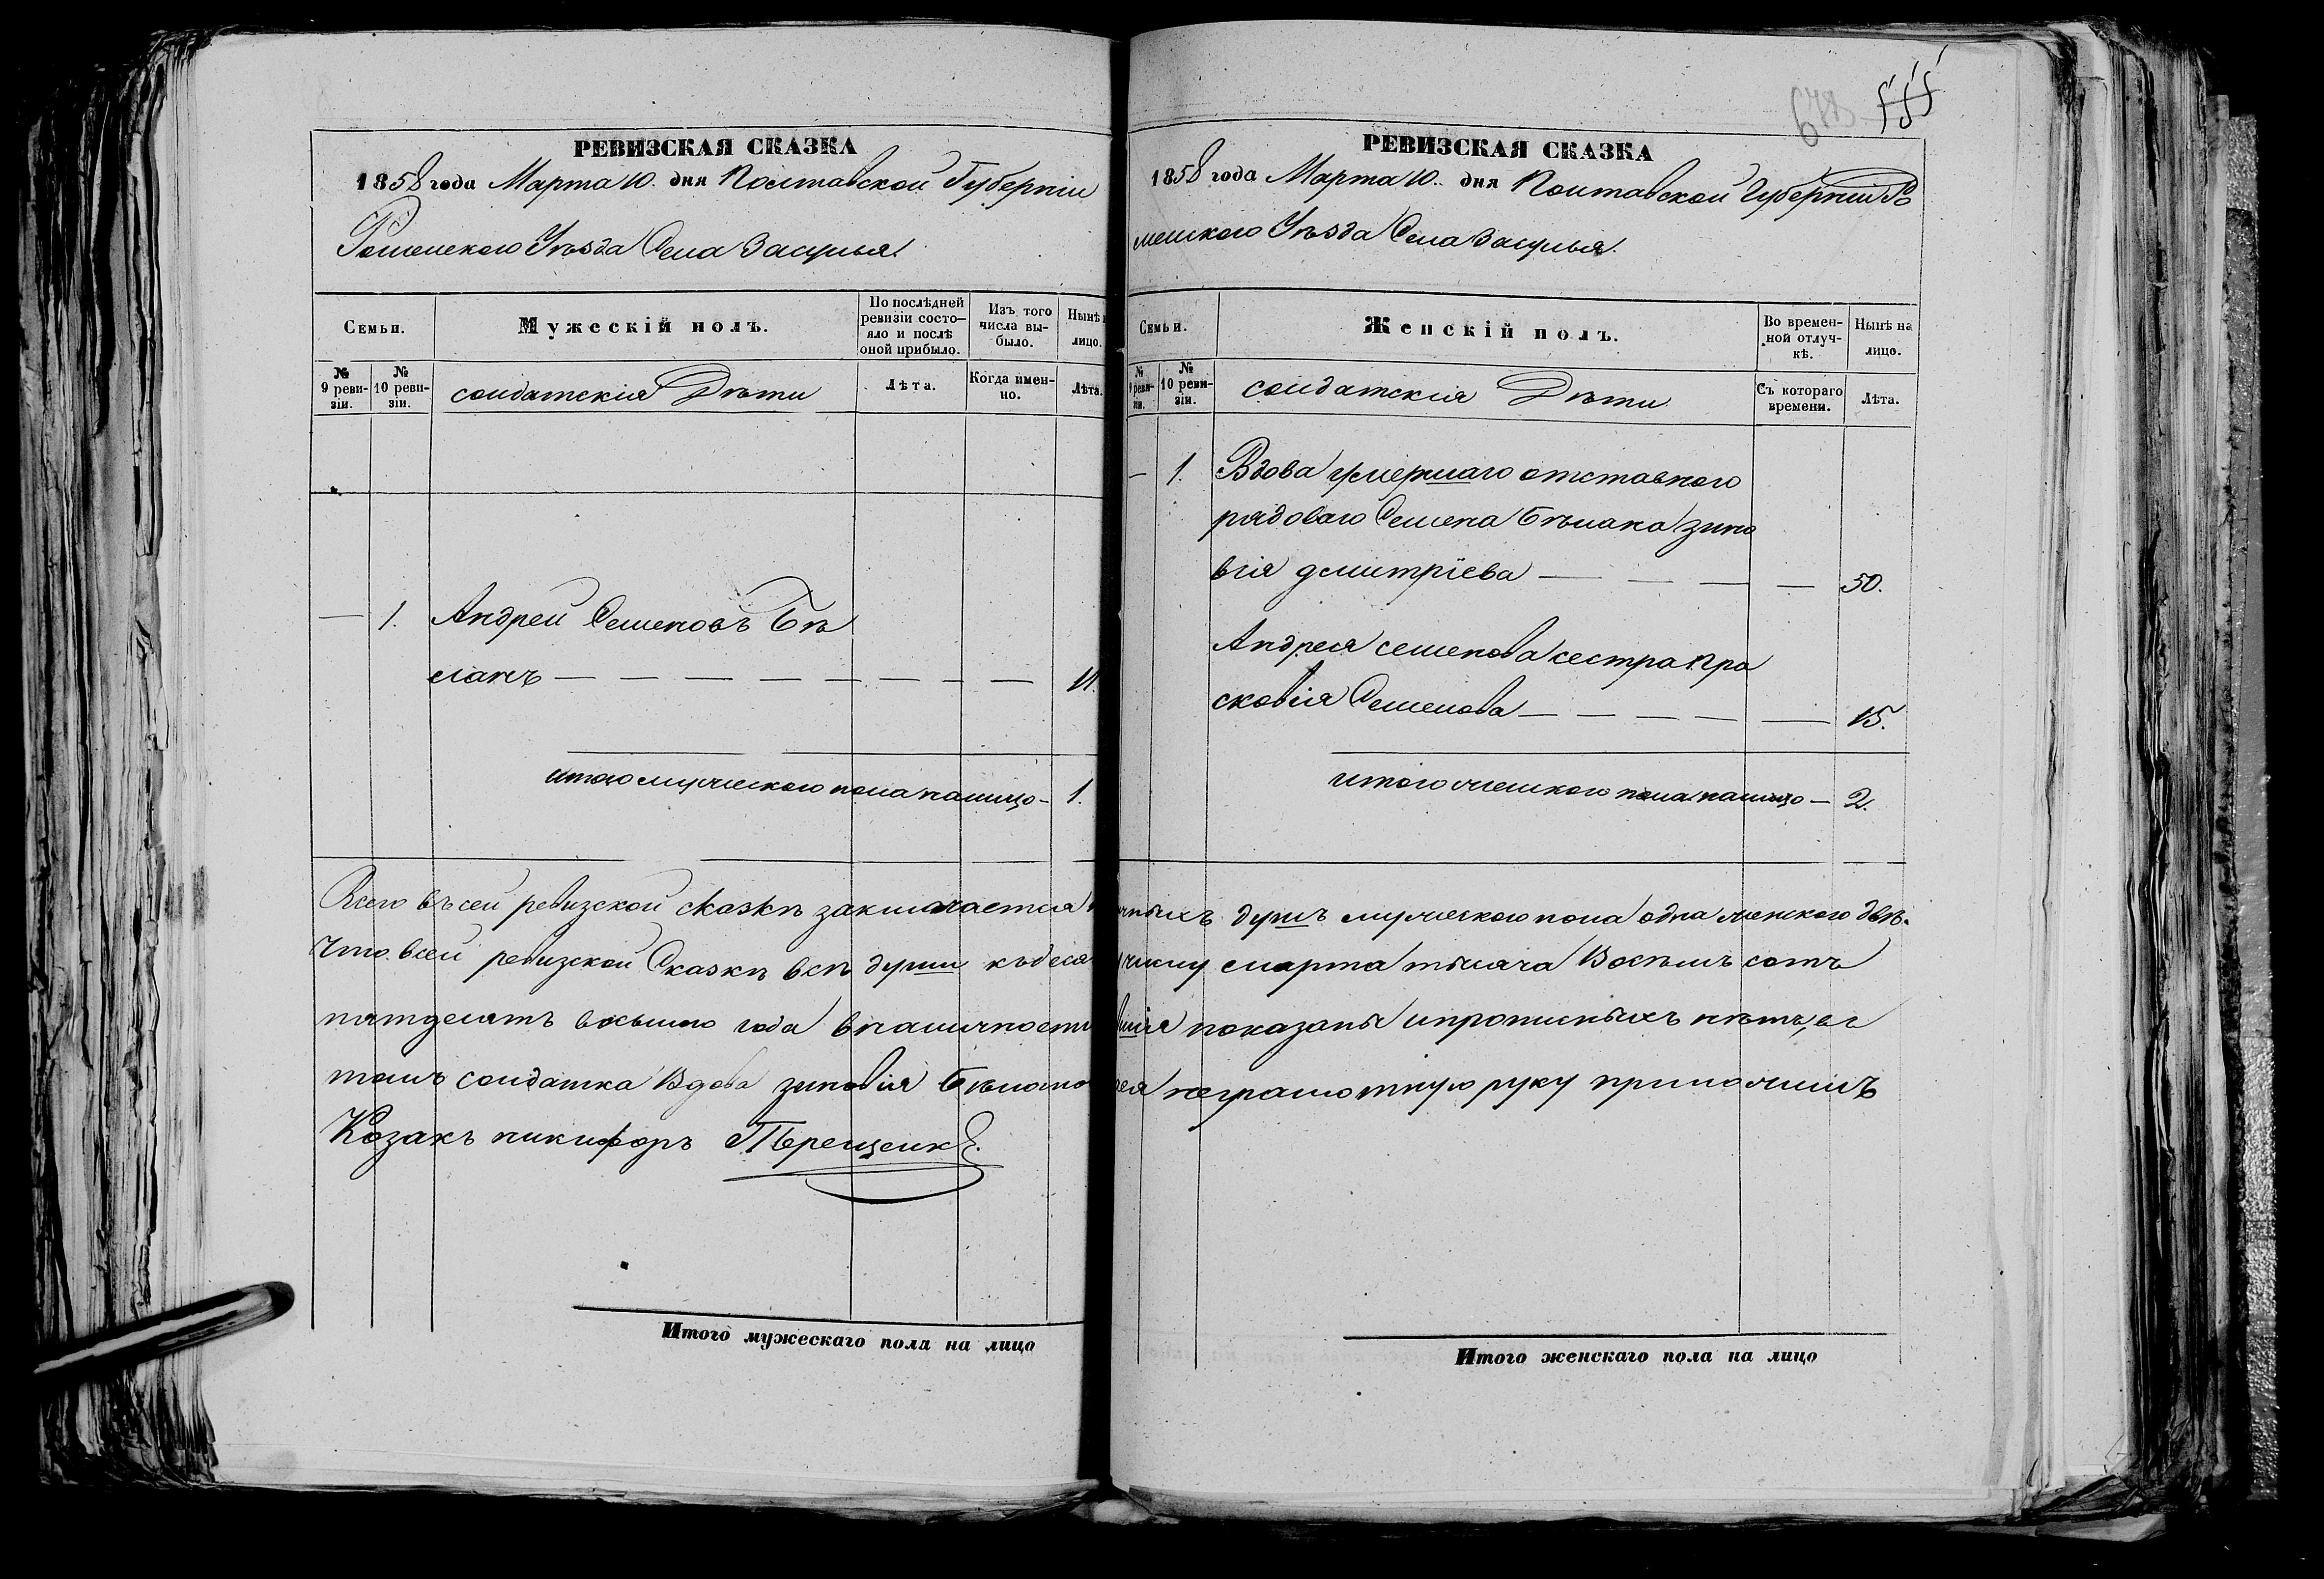 РЕВИЗСКАЯ СКАЗКА
1858 года Марта 10. дня Полтавской Губерніи
Роменского Уѣзда Села Засулья.
Семьи.
Мужескій полъ.
По послѣдней ревизіи состояло и послѣ оной прибыло.
Изъ того числа выбыло.
Нынѣ
лицо.
№ 9 ревизіи.
№ 10 ревизіи.
солдатскія Дѣти
Лѣта.
Когда именно.
Лѣта.
— 1. Андрей Семеновъ Бѣ
лакъ — — — — — — — — 11.
итого мужеского пола налицо — 1.
Всего въ сей ревизской сказкѣ заключается
что всей ревизской Сказкѣ всѣ души къ деся
пятдесятъ восьмого года вналичности
томъ солдатка Вдова зиновія Бѣлако
Козакъ никифоръ Терещенко.
Итого мужескаго пола на лицо
555
РЕВИЗСКАЯ СКАЗКА
1858 года Марта 10. дня Полтавской Губерніи Ро
менского Уѣзда Села Засулья.
Семьи.
Женскій полъ.
Во временной отлучкѣ.
Нынѣ на лицо.
№ 9 ревизіи.
№ 10 ревизіи.
солдатскія Дѣти
Съ котораго времени.
Лѣта.
— 1. Вдова умершаго отставного
рядоваго Семена Бѣлака зино
вія дмитріева — — — — 50.
Андрея семенова сестра Пра
сковія Семенова — — — — — 15.
итого женского пола налицо — 2.
чныхъ душъ мужеского пола одна женского двѣ.
чному марта тысяча Восѣмъ сотъ
показаны ипрописныхъ нѣтъ, вг
неграмотную руку приложилъ
Итого женскаго пола на лицо